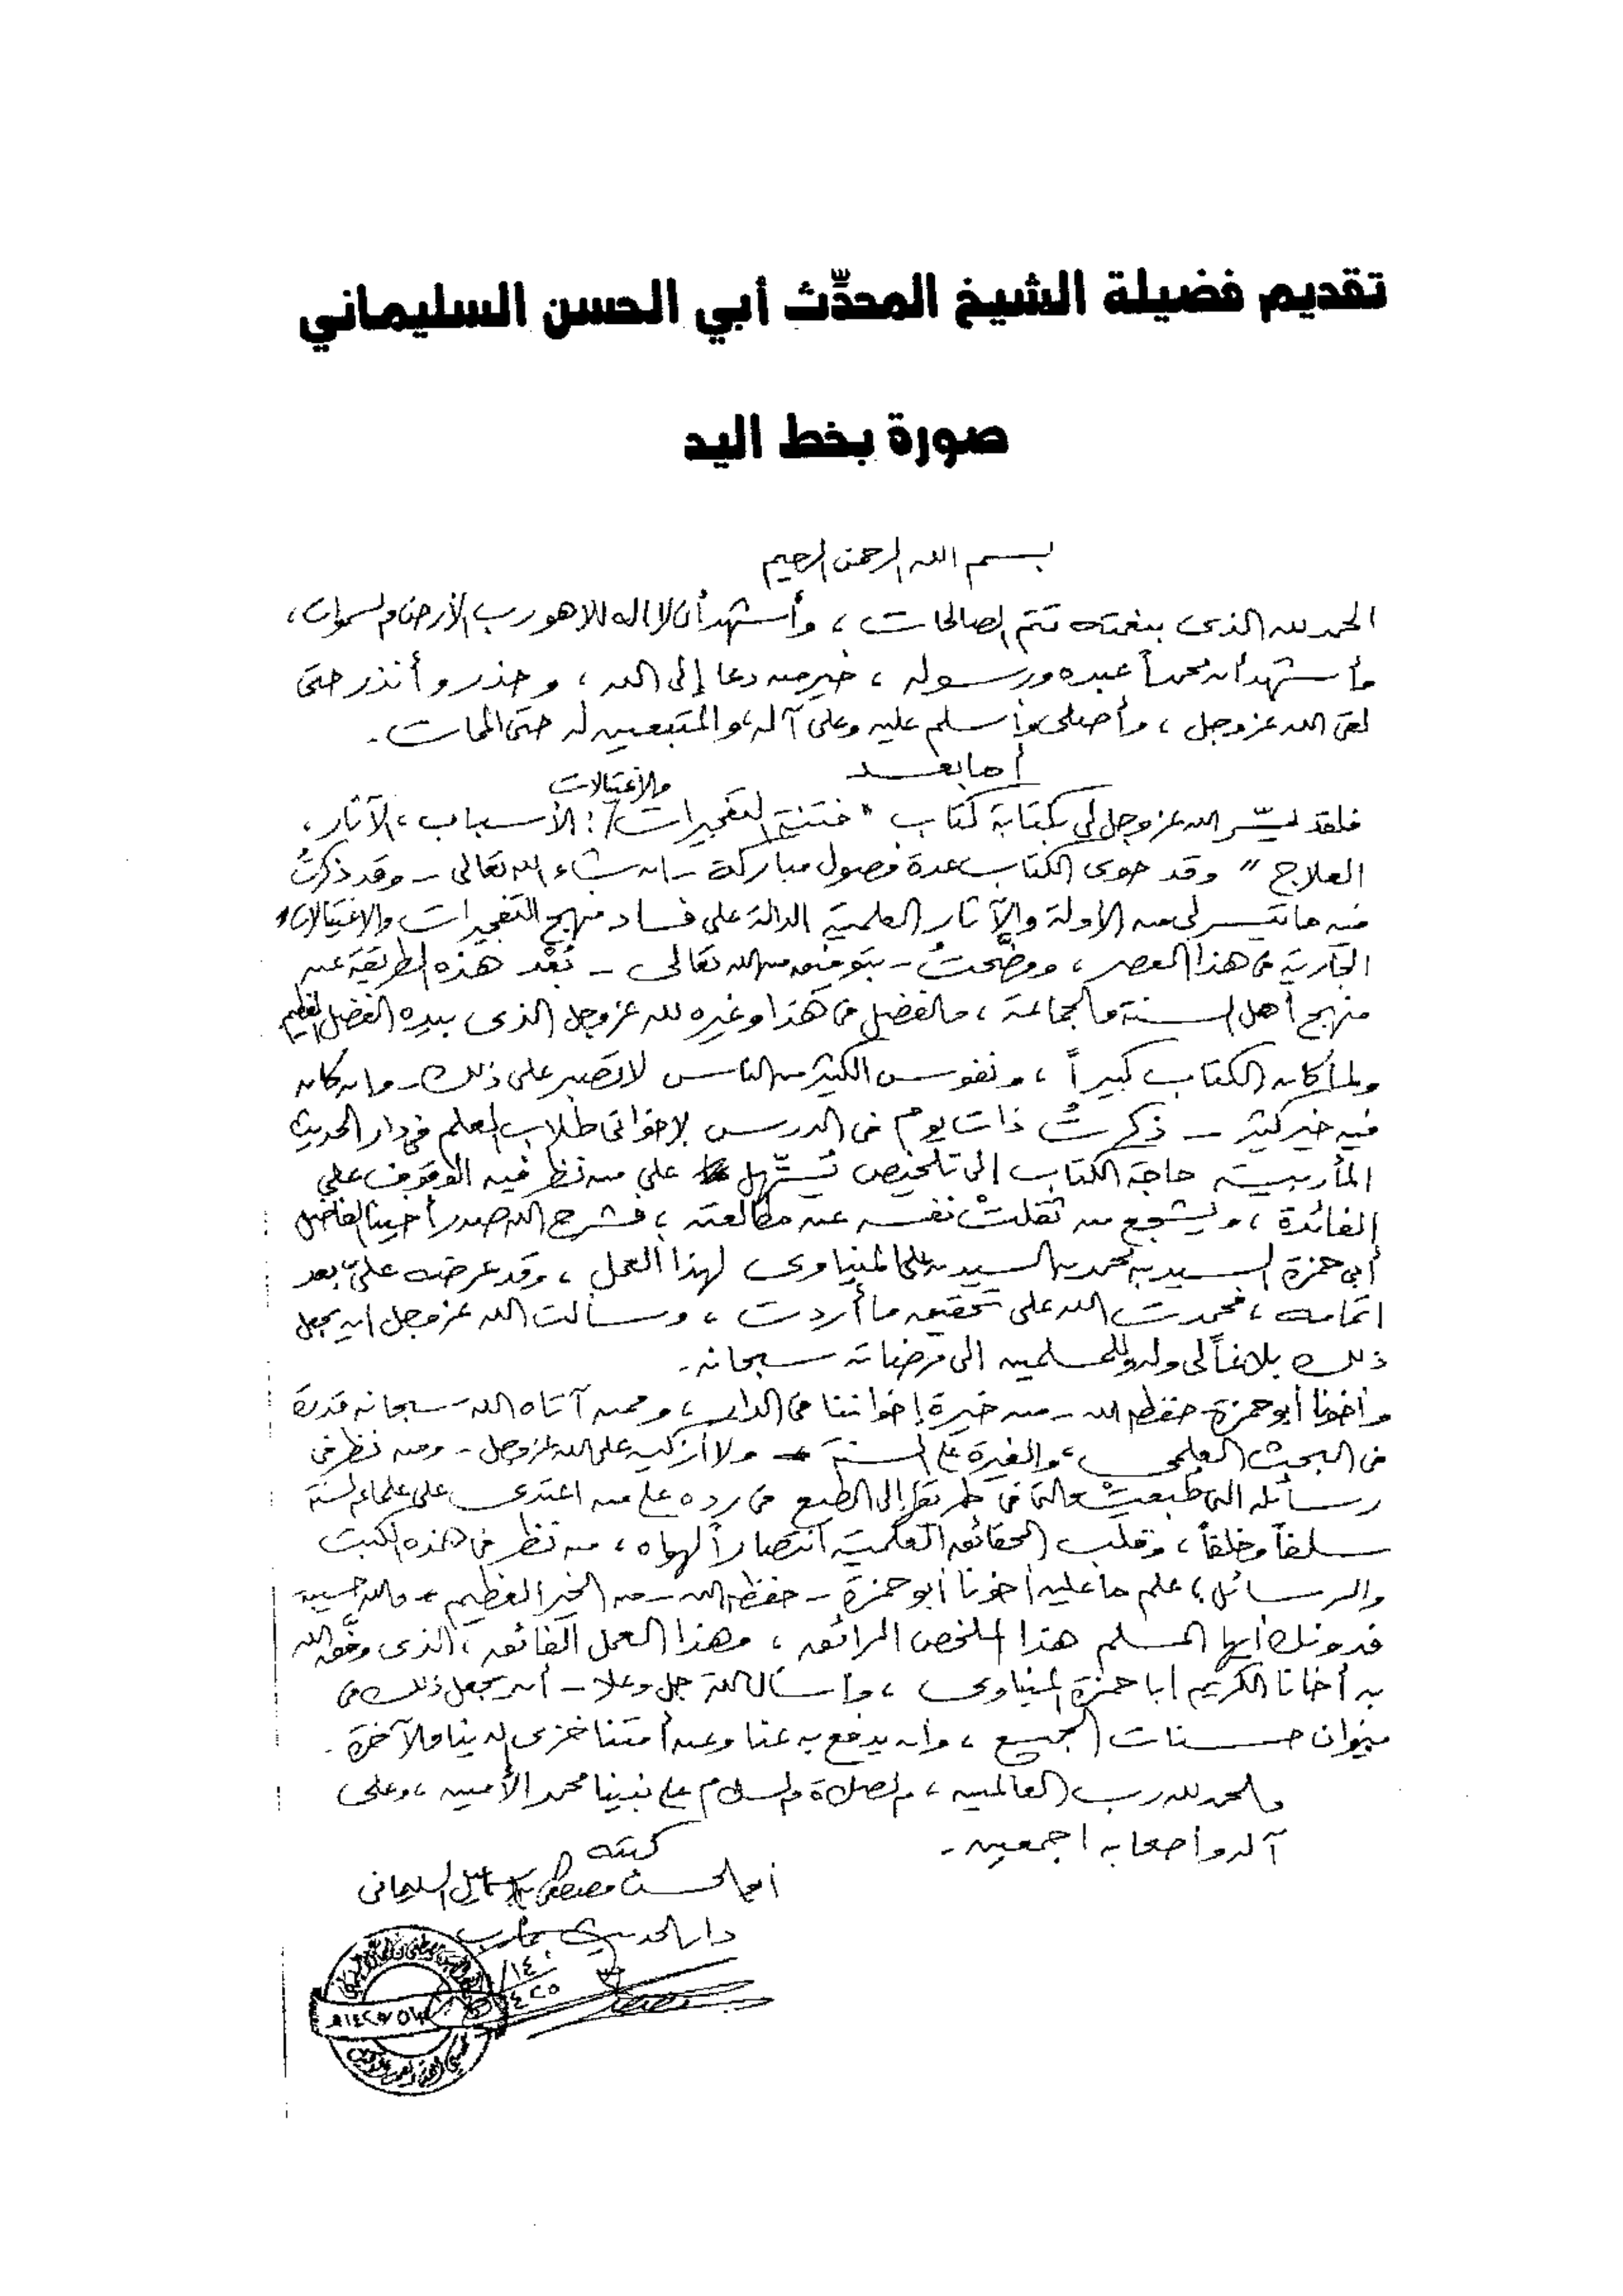 تقديم فضيلة الشيخ المحدِّث أبي الحسن السليماني
صورة بخط اليد
بسم الله الرحمن الرحيم
الحمد لله الذى بنعمته تتم الصالحات ، وأشهد أن لا اله الا هو رب الأرض والسموات ،
وأشهد أن محمداً عبده ورسوله ، خير من دعا إلى الله ، وحذر وأنذر حتى
لقى الله عز وجل ، وأصلى وأسلم عليه وعلى آله ، والمتبعين له حتى الممات .
أما بعد
والاغتيالات
فلقد يسّر الله عز وجل لى كتابة كتاب " فتنة التفجيرات / : الأسباب ، الآثار ،
العلاج " وقد حوى الكتاب عدة فصول مباركة - ان شاء الله تعالى - وقد ذكرتُ
فيه ما تيسر لى من الأدلة والآثار العلمية الدالة على فساد منهج التفجيرات والاغتيالات
الجارية فى هذا العصر ، ووضّحتُ - بتوفيق من الله تعالى - بُعْد هذه الطريقة عن
منهج أهل السنة والجماعة ، والفضل فى هذا وغيره لله عز وجل الذى بيده الفضل العظيم
ولما كان الكتاب كبيراً ، ونفوس الكثير من الناس لا تصبر على ذلك - وان كان
فيه خير كثير - ذكرتُ ذات يوم فى الدرس لإخوانى طلاب العلم فى دار الحديث
المأربية حاجة الكتاب الى تلخيص يُسَهِّل على من نظر فيه الوقوف على
الفائدة ، ويشجع من ثقلتْ نفسه عن مطالعته ، فشرح الله صدر أخينا الفاضل
أبى حمزة السيد بن محمد بن السيد بن على المنياوى لهذا العمل ، وقد عرضه علىّ بعد
اتمامه ، فحمدت الله على تحقيق ما أردت ، وسألت الله عز وجل ان يجعل
ذلك بلاغاً لى وله وللمسلمين الى مرضاته سبحانه .
وأخونا أبو حمزة - حفظه الله - من خيرة إخواننا فى الدار ، وممن آتاه الله سبحانه قدرة
فى البحث العلمى ، والغيرة على السنة - ولا أزكيه على الله عز وجل - ومن نظر فى
رسائله التى طبعتْ والتى فى طريقها إلى الطبع فى رده على من اعتدى على علماء السنة
سلفاً وخلفاً ، وقلب الحقائق العلمية انتصاراً لهواه ، من نظر فى هذه الكتب
والرسائل ؛ علم ما عليه أخونا أبو حمزة - حفظه الله - من الخير العظيم - والله حسيبه
فدونك أيها المسلم هذا الملخص الرائق ، وهذا العمل الفائق ، الذى وفَّق الله
به أخانا الكريم أبا حمزة المنياوى ، وأسأل الله جل وعلا - أن يجعل ذلك فى
ميزان حسنات الجميع ، وان يدفع به عنا وعن أمتنا خزى الدنيا والآخرة .
والحمد لله رب العالمين ، والصلاة والسلام على نبينا محمد الأمين ، وعلى
آله وأصحابه أجمعين .
كتبه
أبو الحسن مصطفى بن اسماعيل السليمانى
دار الحديث بمأرب